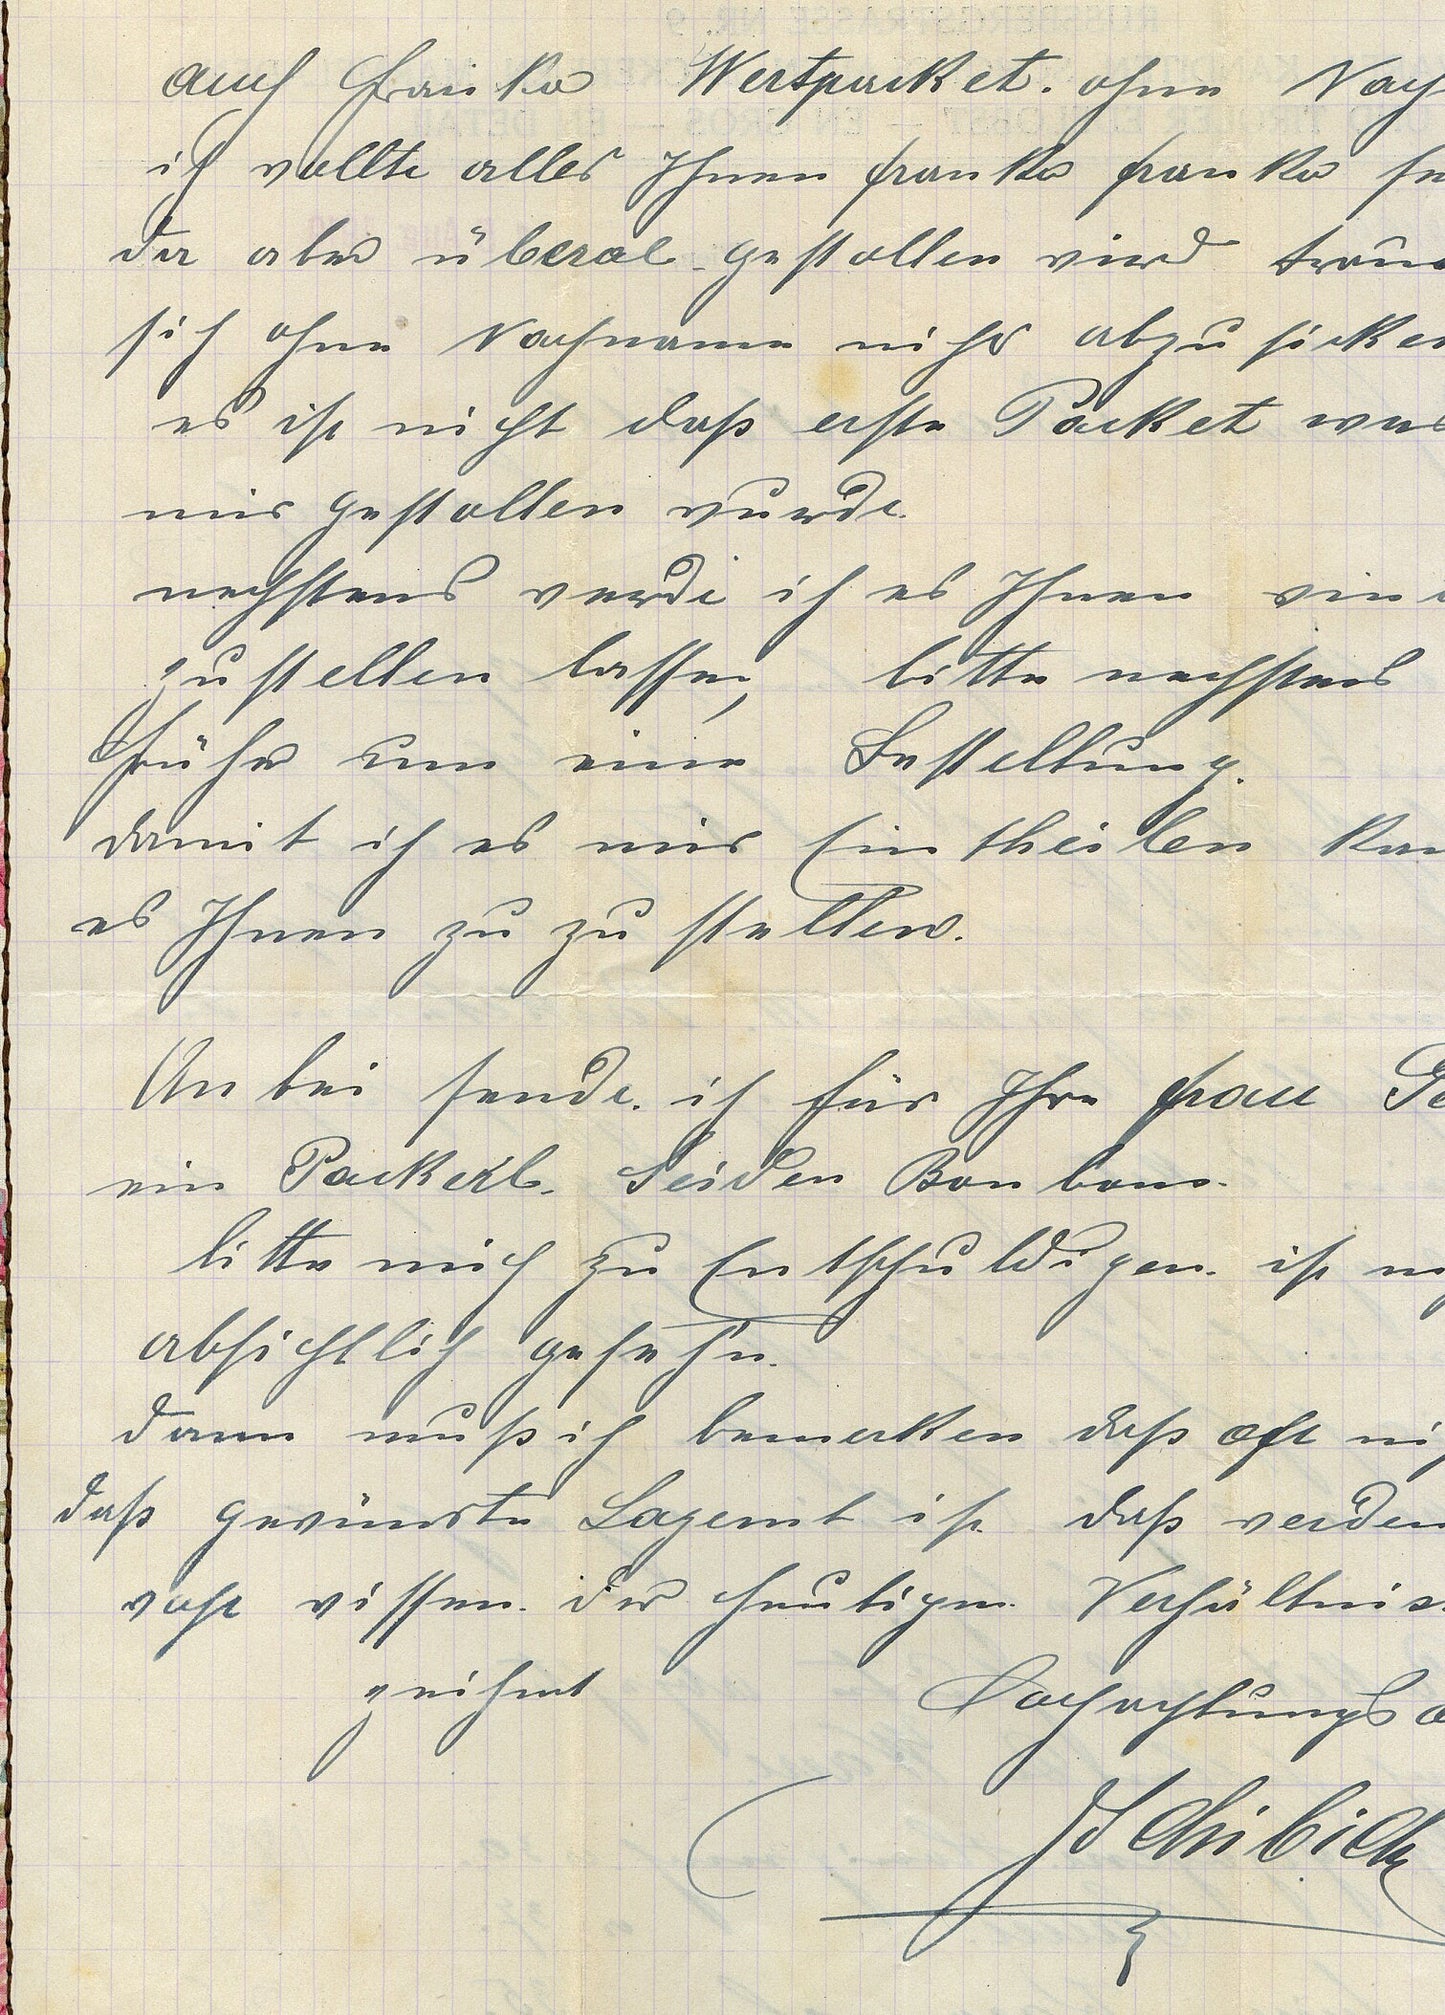 auch franko Wertpacket. ohne Nach
ich wollte alles Ihnen franko franko se
da aber überal gestollen wird trau
sich ohne Nachname nicht abzuschicken
es ist nicht daß erste Packet was
mir gestollen wurde.
nechstens werde ich es Ihnen
zustellen lassen, bitte nechstens
früher um eine Bestellung.
damit ich es mir Eintheilen kan
es Ihnen zu zu stellen.
Anbei sende ich für Ihre frau Ge
ein Packerl. Seiden Bonbons.
bitte mich zu Entschuldigen. ist ni
absichtlich geschehn.
dann muß ich bemerken daß oft nich
daß gewünschte Lagernt ist. daß werden
wohl wissen. der heutigen Verhältniss
zeichnet Hochachtungsvo